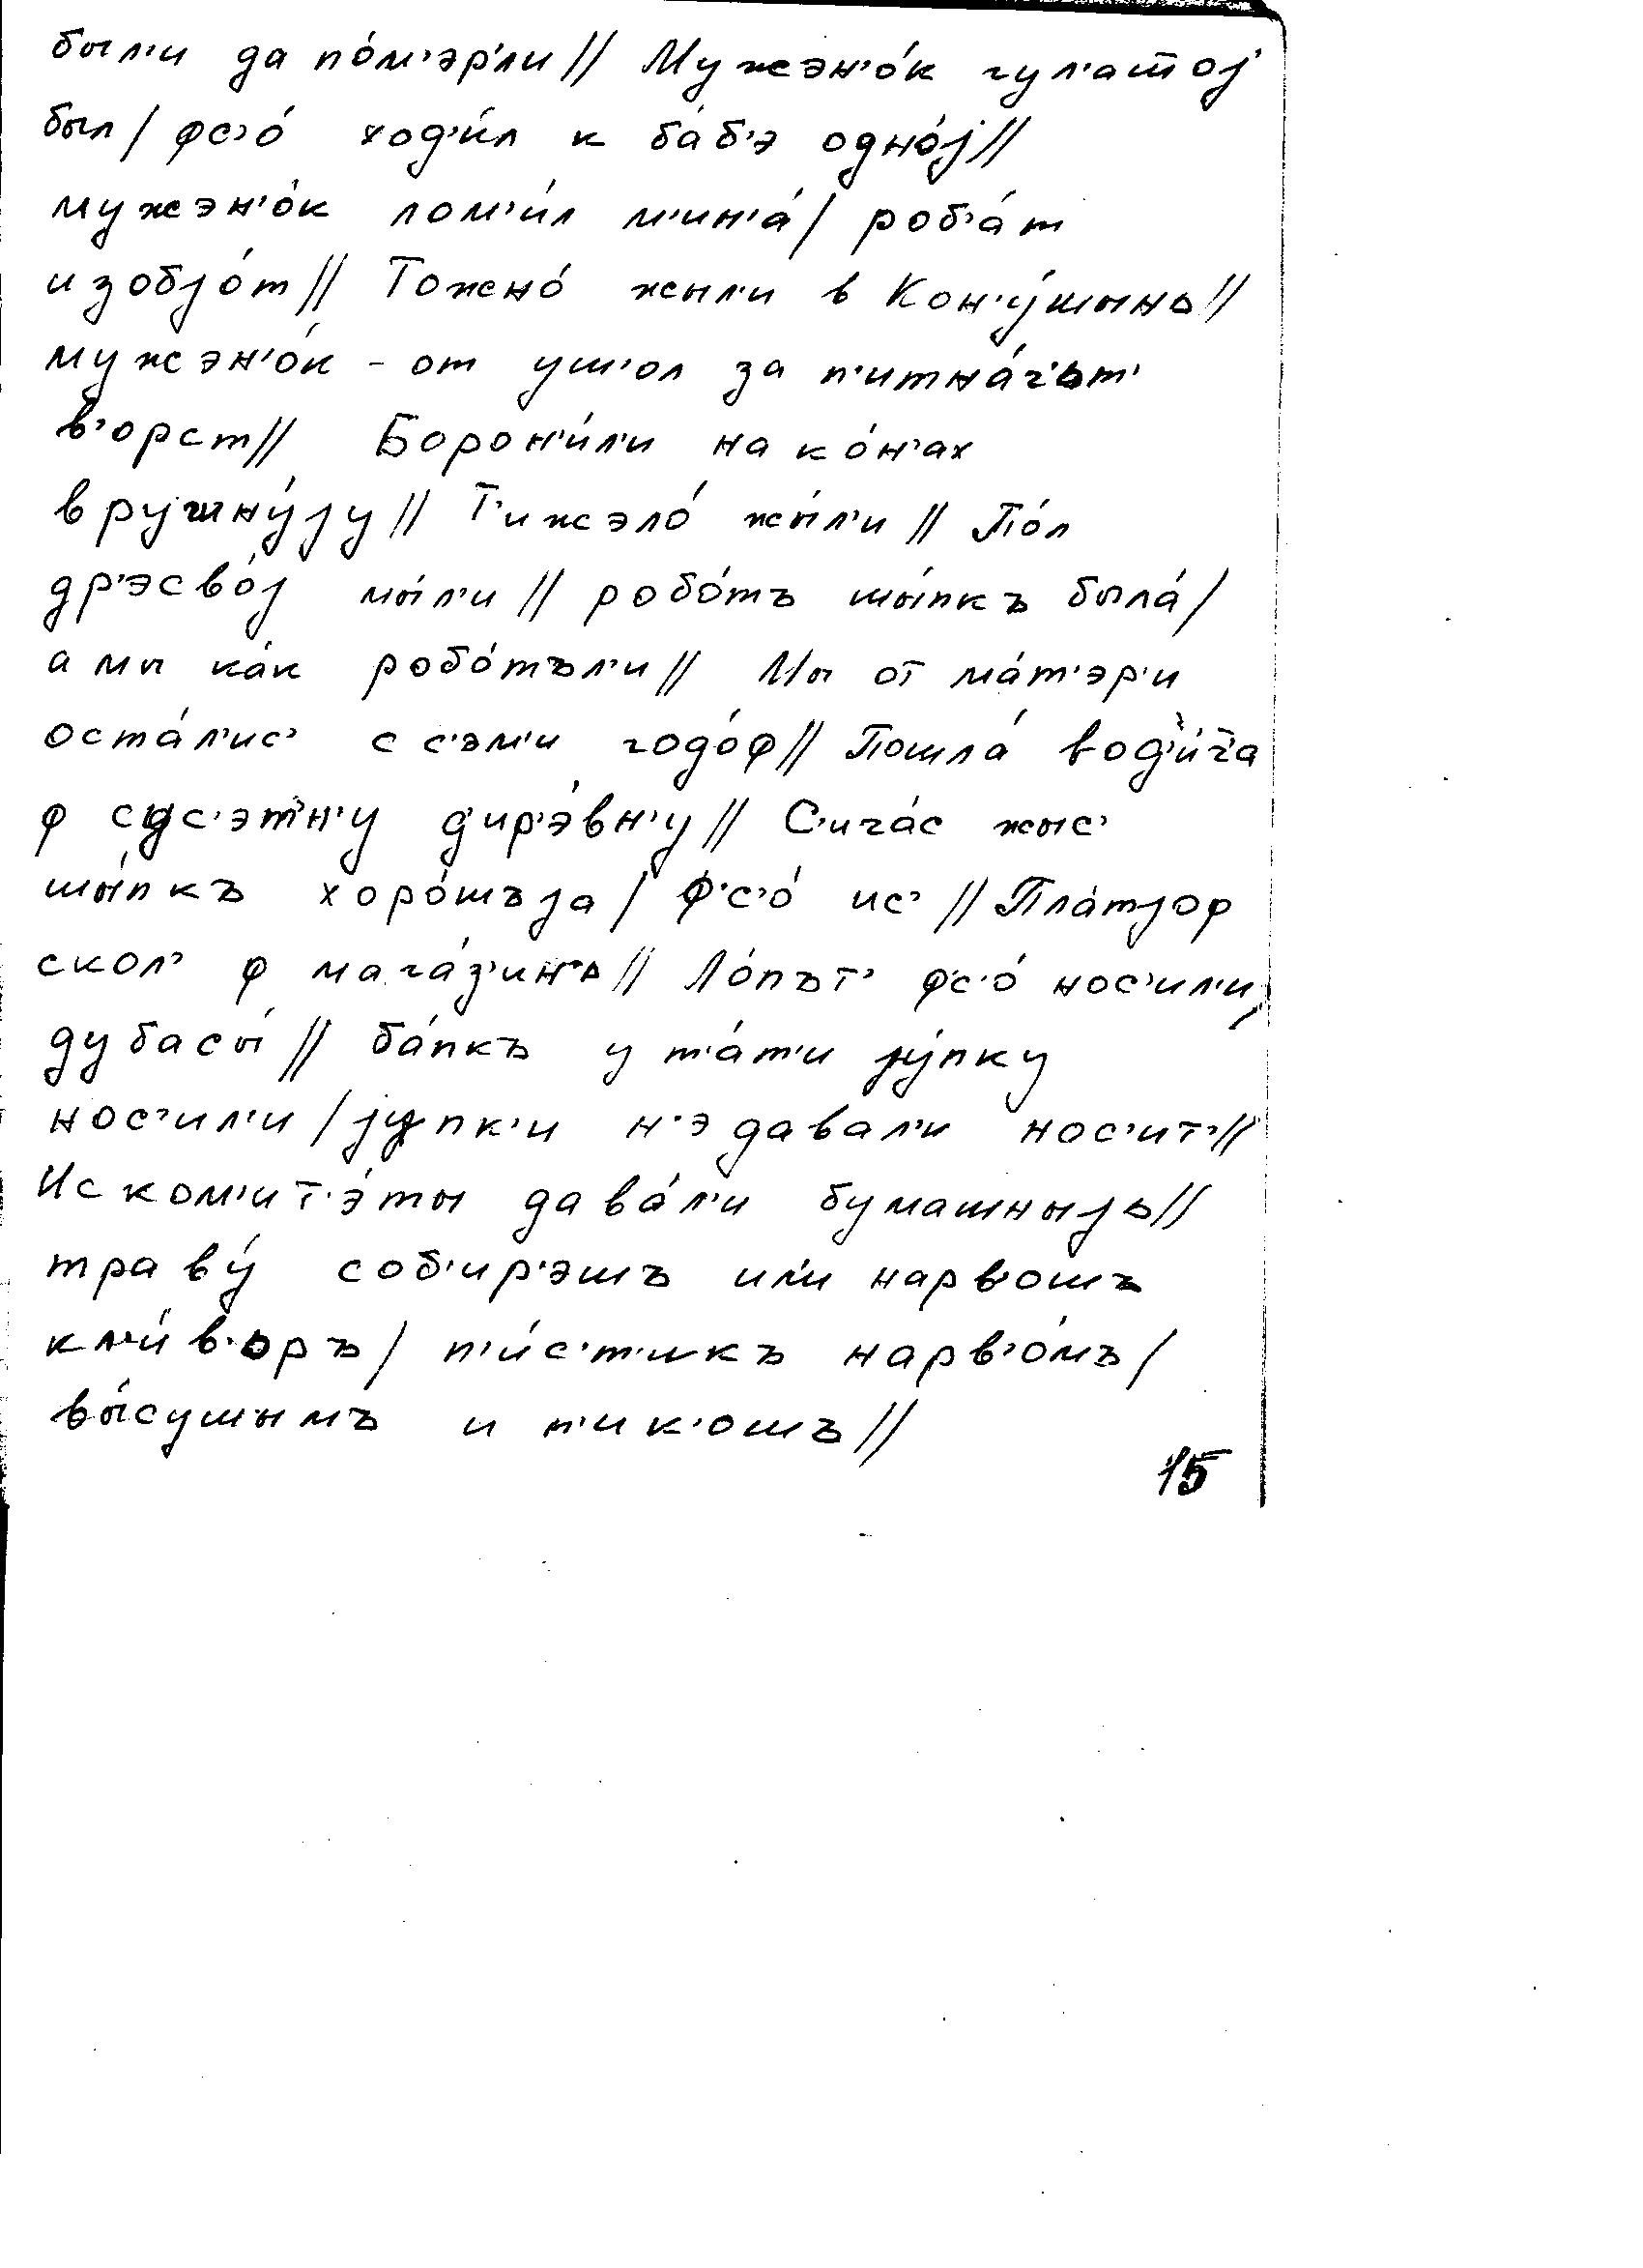 был'и да по́м'эр'ли // Мужэн'о́к гул'атој
был / фс'о́ ход'и́л к ба́б'э одно́ј //
мужэн'о́к лом'и́л м'ин'а́ / роб'а́т
изобјо́т // Тожно́ жыл'и в Кон'у́шынь //
мужэн'о́к - от уш'ол за п'итна́ч'ьт'
в'орст // Борон'и́л'и на ко́н'ах
вручну́ју // Т'ижэло́ жы́л'и // По́л
др'эсво́ј мы́л'и // робо́тъ шы́пкъ была́ /
а мы ка́к робо́тъл'и // Мы от ма́т'эр'и
оста́л'ис' с с'эм'и годо́ф // Пошла́ вод'и́ц'а
ф сус'э́тн'у д'ир'э́вн'у // С'ича́с жыс'
шы́пкъ хоро́шъја / Ф'с'о́ ис' // Пла́тјоф
скол' ф мага́з'инь // Ло́път' фс'о́ нос'ил'и,
дубасы́ // ба́пкъ у т'а́т'и јупку
нос'ил'и / јупк'и н'э давал'и нос'ит' //
Ис ком'ит'э́ты дава́л'и бумашныјь //
траву́ соб'ир'эшъ ил'и нарв'ошъ
кл'и́в'ьръ / п'и́с'т'икъ нарв'о́мъ /
вы́сушымъ и п'ик'ошъ //
15